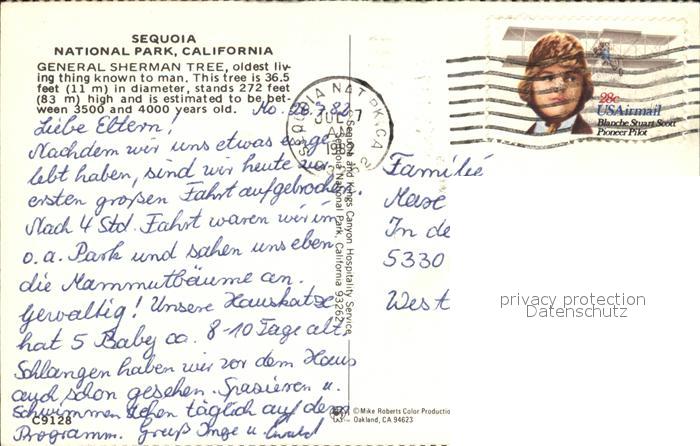 SEQUOIA
NATIONAL PARK, CALIFORNIA
GENERAL SHERMAN TREE, oldest liv-
ing thing known to man. This tree is 36.5
feet (11 m) in diameter, stands 272 feet
(83 m) high and is estimated to be bet-
ween 3500 and 4000 years old.
Mo. 26.7.82
Liebe Eltern!
Nachdem wir uns etwas einge-
lebt haben, sind wir heute zur
ersten großen Fahrt aufgebrochen.
Nach 4 Std. Fahrt waren wir im
o. a. Park und sahen uns eben
die Mammutbäume an.
Gewaltig! Unsere Hauskatze
hat 5 Baby ca. 8-10 Tage alt
Schlangen haben wir vor dem Haus
auch schon gesehen. Spazieren u.
Schwimmen stehen täglich auf dem
Programm. Gruß Inge u. Ewald
C9128
Sequoia and Kings Canyon Hospitality Service,
Sequoia National Park, California 93262
©Mike Roberts Color Productio
Oakland, CA 94623
SEQUOIA NAT PK CA
JUL 27
1982
28c
USAirmail
Blanche Stuart Scott
Pioneer Pilot
Familie
In de
5330
West
privacy protection
Datenschutz